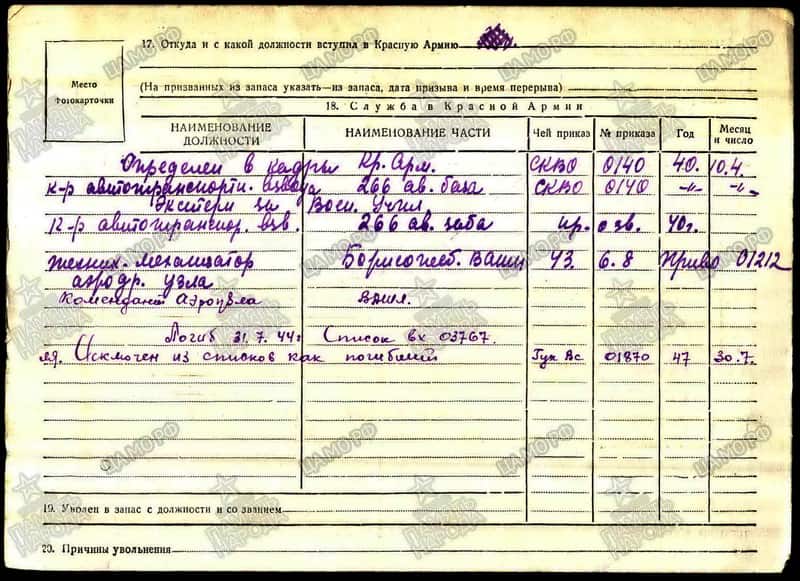 17. Откуда и с какой должности вступил в Красную Армию
Место фотокарточки
(На призванных из запаса указать—из запаса, дата призыва и время перерыва)
18. Служба в Красной Армии
НАИМЕНОВАНИЕ ДОЛЖНОСТИ НАИМЕНОВАНИЕ ЧАСТИ Чей приказ № приказа Год Месяц и число
Определен в кадры Кр. Арм. СКВО 0140 40. 10.4.
к-р автотранспортн. взвода 266 ав. база СКВО 0140 -"- -"-
Экстерн за Воен. Учил.
К-р автотранспор. взв. 266 ав. база пр. о зв. 40г.
техник-механизатор Борисоглеб. ВАШП УЗ. 6.8 01212
аэродр. узла
Комендант Аэроузла ВАШП.
Погиб 31.7.44г Список вх 03767.
Исключен из списков как погибший Гук Вс 01870 47 30.7.
19. Уволен в запас с должности и со званием
20. Причины увольнения
ПАМЯТЬ НАРОДА
ЦАМО.РФ